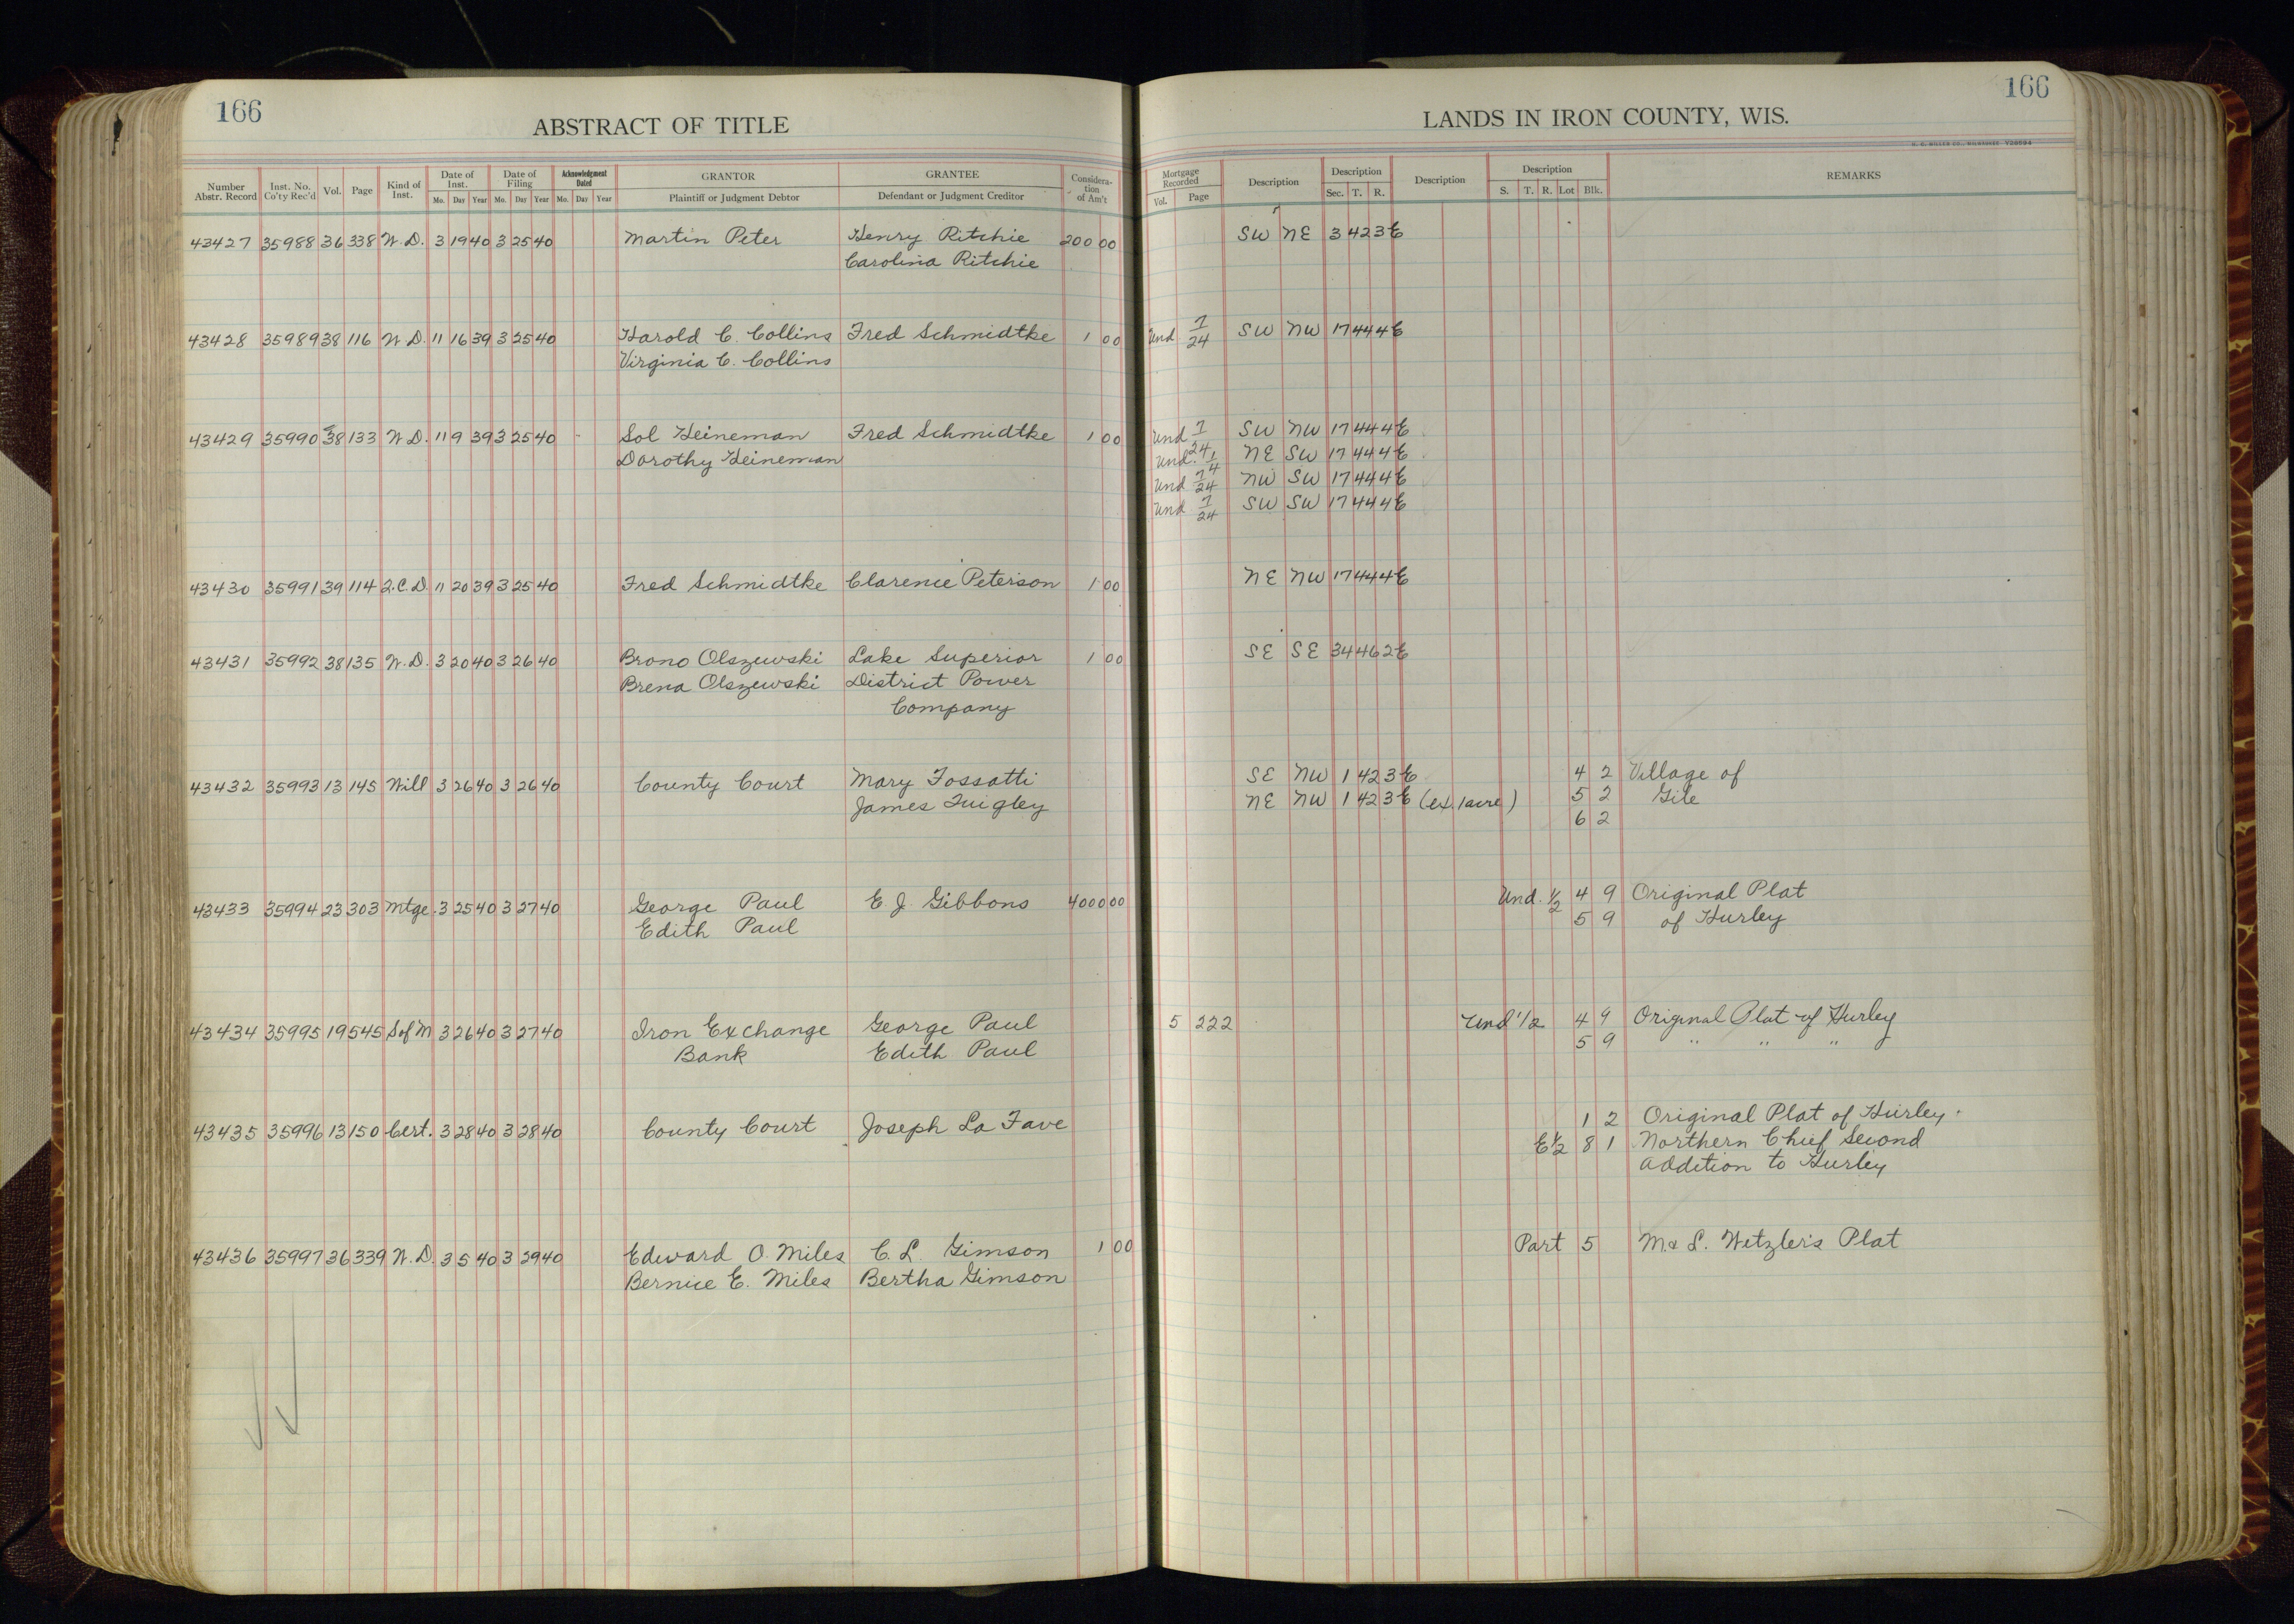 166
ABSTRACT OF TITLE
Number Abstr. Record | Inst. No. Co'ty Rec'd | Vol. | Page | Kind of Inst. | Date of Inst. Mo. Day Year | Date of Filing Mo. Day Year | Acknowledgment Dated Mo. Day Year | GRANTOR Plaintiff or Judgment Debtor | GRANTEE Defendant or Judgment Creditor | Consideration of Am't
43427 35988 36 338 W.D. 3 19 40 3 25 40 Martin Peter Henry Ritchie 200 00
Carolina Ritchie
43428 35989 38 116 W.D. 11 16 39 3 25 40 Harold C. Collins Fred Schmidtke 1 00
Virginia C. Collins
43429 35990 38 133 W.D. 11 9 39 3 25 40 Sol Heineman Fred Schmidtke 1 00
Dorothy Heineman
43430 35991 39 114 2.C.D. 11 20 39 3 25 40 Fred Schmidtke Clarence Peterson 1 00
43431 35992 38 135 W.D. 3 20 40 3 26 40 Brono Olszewski Lake Superior 1 00
Brena Olszewski District Power
Company
43432 35993 13 145 Will 3 26 40 3 26 40 County Court Mary Fossatti
James Quigley
43433 35994 23 303 Mtge. 3 25 40 3 27 40 George Paul E. J. Gibbons 4000 00
Edith Paul
43434 35995 19 545 S of M 3 26 40 3 27 40 Iron Exchange George Paul
Bank Edith Paul
43435 35996 13 150 Cert. 3 28 40 3 28 40 County Court Joseph La Fave
43436 35997 36 339 W.D. 3 5 40 3 29 40 Edward O. Miles C. L. Gimson 1 00
Bernice E. Miles Bertha Gimson
166
LANDS IN IRON COUNTY, WIS.
Mortgage Recorded Vol. Page | Description | Description Sec. T. R. | Description | Description S. T. R. Lot Blk. | REMARKS
SW NE 3 42 3E
Und 7/24 SW NW 17 44 4E
Und 7/24 SW NW 17 44 4E
Und. 1/4 NE SW 17 44 4E
Und 7/24 NW SW 17 44 4E
Und 7/24 SW SW 17 44 4E
NE NW 17 44 4E
SE SE 34 46 2E
SE NW 1 42 3E 4 2 Village of
NE NW 1 42 3E (ex. 1 acre) 5 2 Gile
6 2
Und. 1/2 4 9 Original Plat
5 9 of Hurley
5 222 Und 1/2 4 9 Original Plat of Hurley
5 9 " " "
1 2 Original Plat of Hurley.
E 1/2 8 1 Northern Chief Second
Addition to Hurley
Part 5 M. & L. Wetzler's Plat